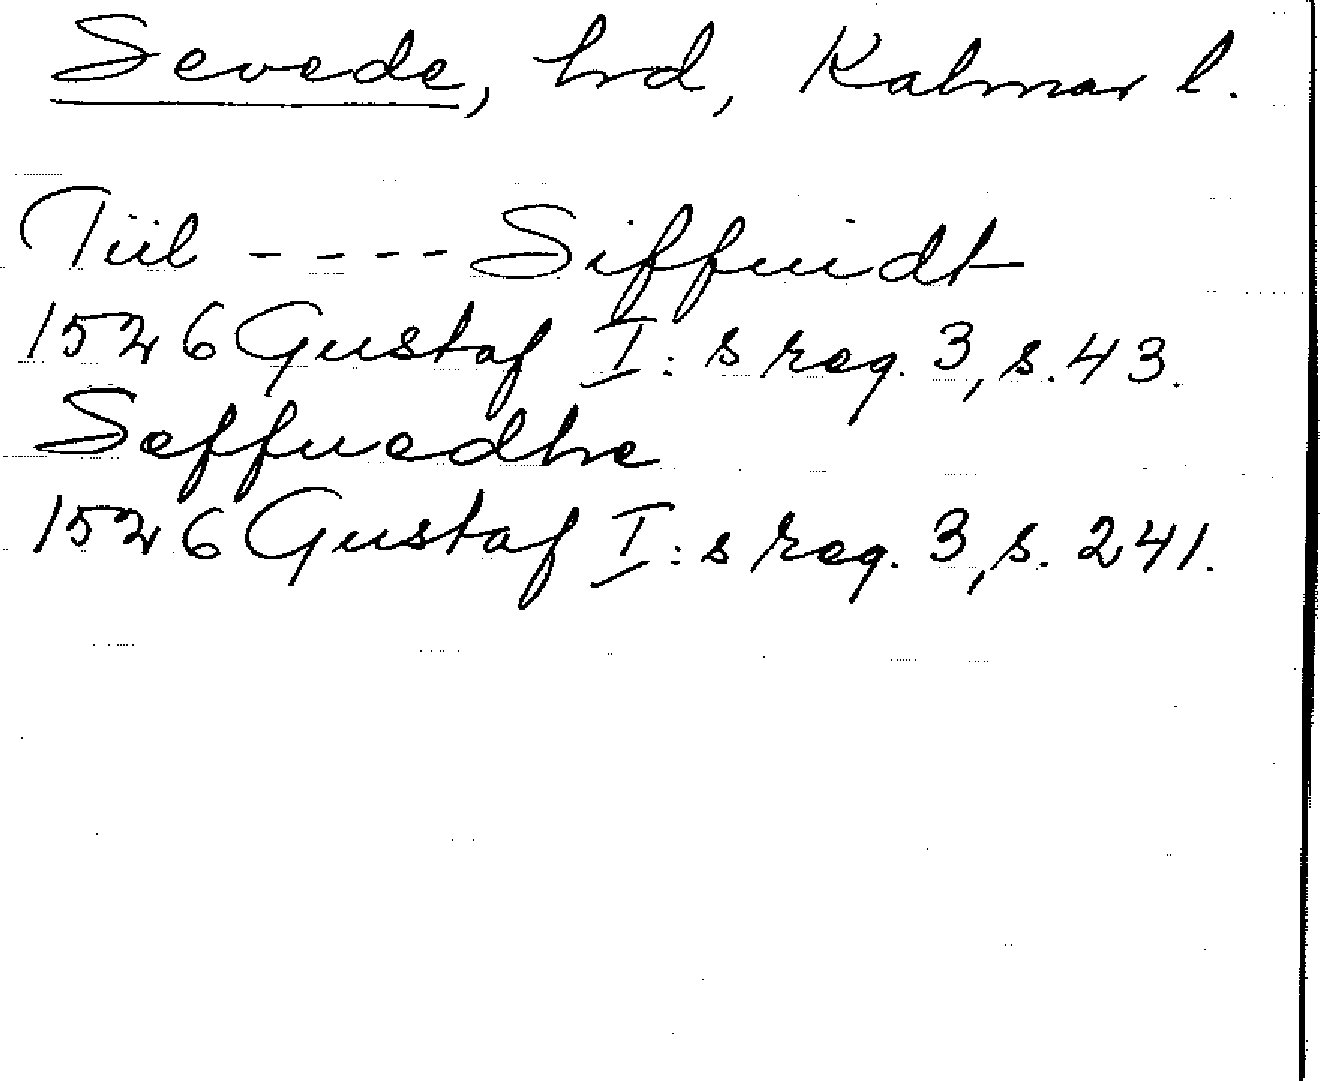 Sevede, hrd, Kalmar l.
Tiil - - - - Siffuidt
1526 Gustaf I:s reg. 3, s. 43.
Seffuedhe
1526 Gustaf I:s reg. 3, s. 241.